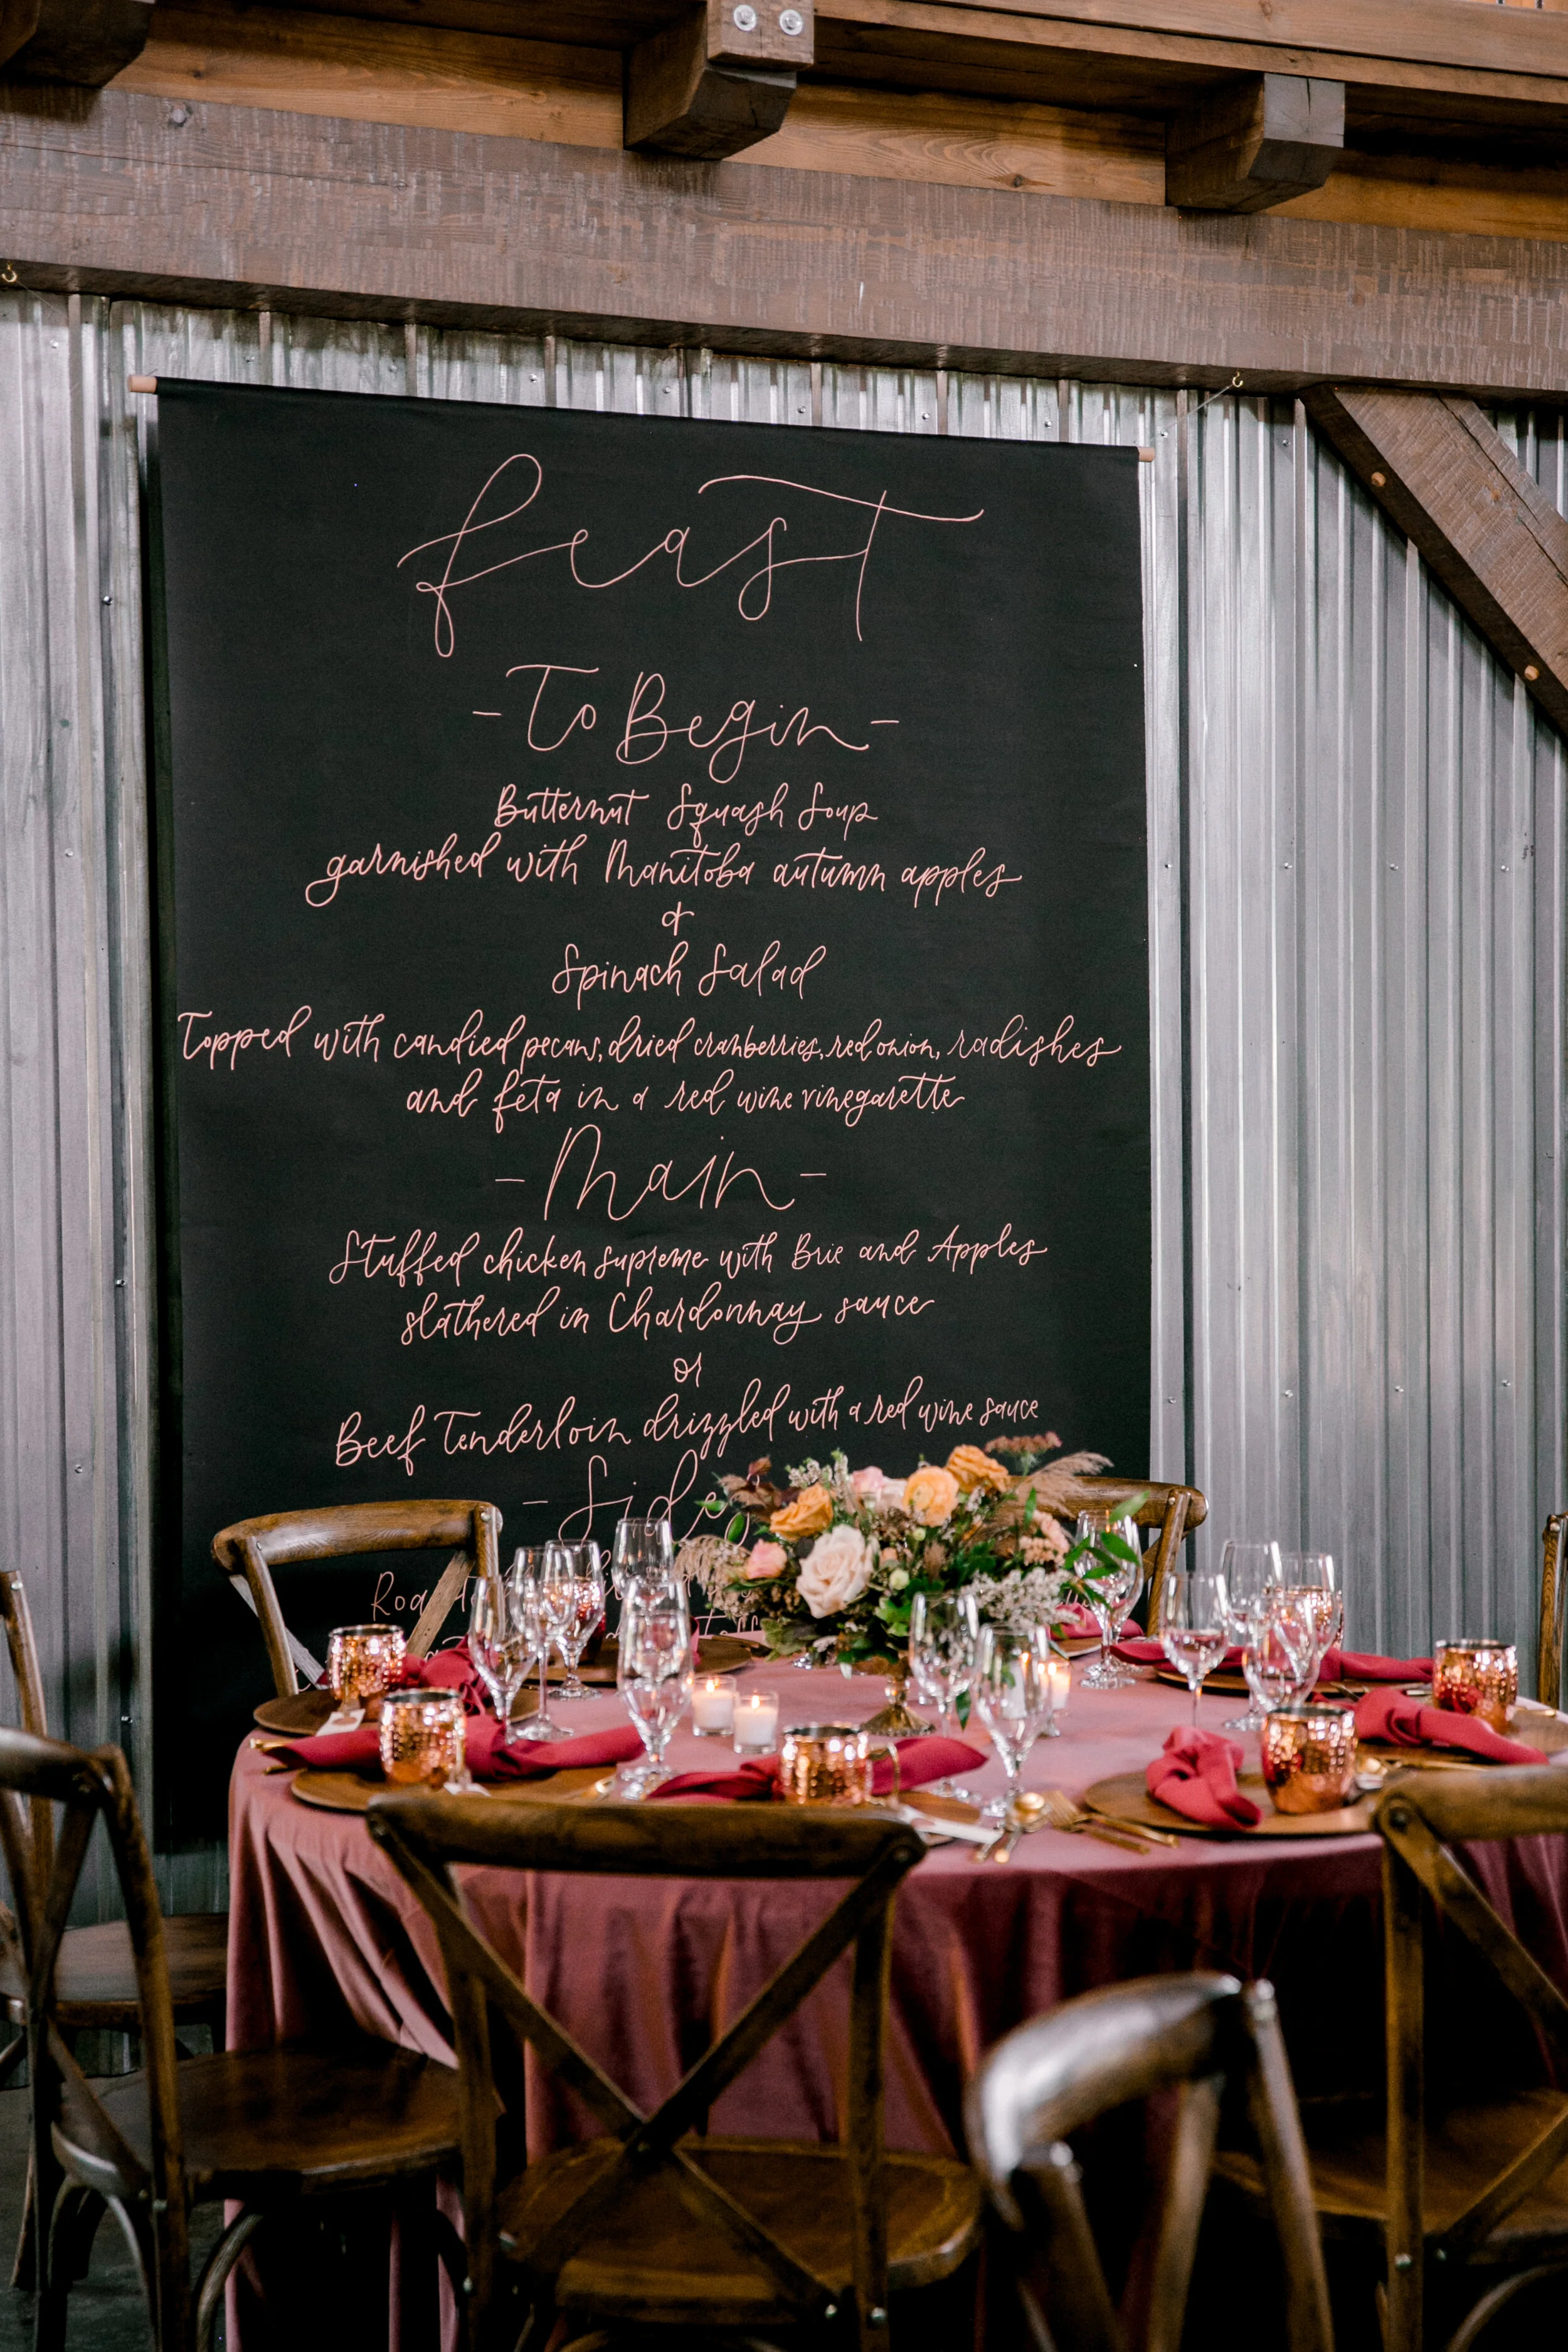 feast
- To Begin -
Butternut Squash Soup
garnished with Manitoba autumn apples
&
Spinach Salad
Topped with candied pecans, dried cranberries, red onion, radishes
and feta in a red wine vinegarette
- Main -
Stuffed chicken supreme with Brie and Apples
slathered in Chardonnay sauce
or
Beef Tenderloin drizzled with a red wine sauce